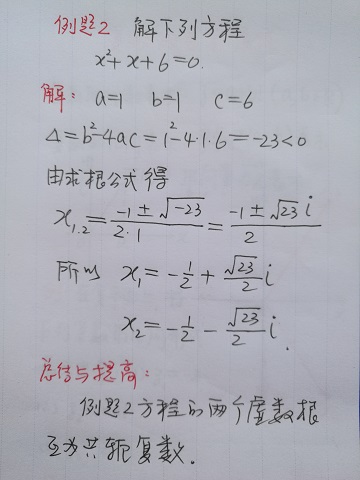 例题2 解下列方程
x²+x+6=0.
解: a=1 b=1 c=6
Δ=b²-4ac=1²-4·1·6=-23<0
由求根公式得
x₁.₂=(-1±√-23)/(2·1)=(-1±√23 i)/2
所以 x₁=-1/2+√23/2 i
x₂=-1/2-√23/2 i.
总结与提高:
例题2方程的两个虚数根
互为共轭复数.